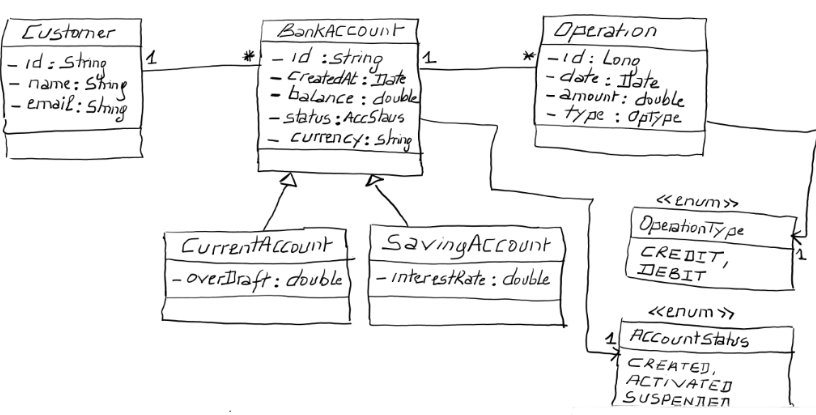 Customer
- id : String
- name : String
- email : String
1
*
BankAccount
- id : String
- createdAt : Date
- balance : double
- status : AccStaus
- currency : String
1
*
Operation
- id : Long
- date : Date
- amount : double
- type : OpType
CurrentAccount
- overDraft : double
SavingAccount
- interestRate : double
<<enum>>
OperationType
CREDIT,
DEBIT
1
<<enum>>
1
AccountStatus
CREATED,
ACTIVATED
SUSPENDED